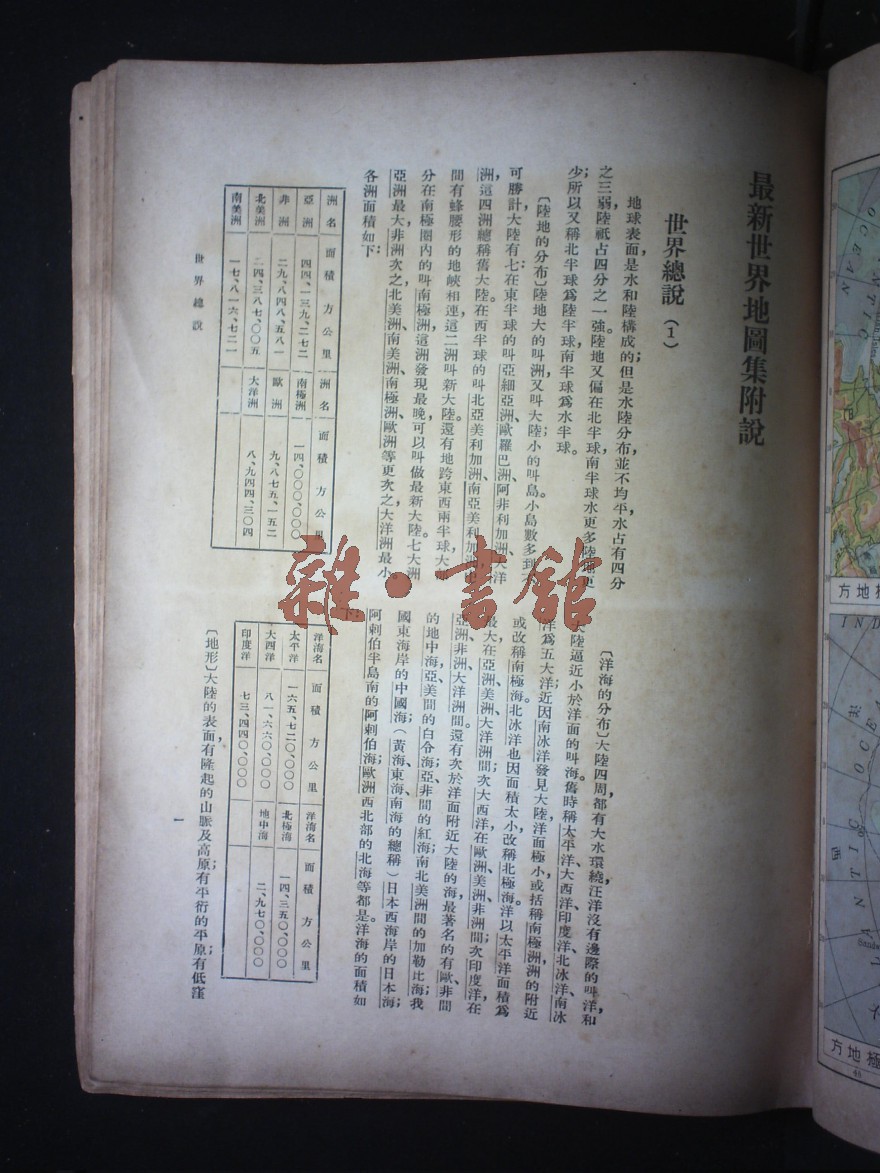 最新世界地圖集附說
世界總說（1）
地球表面是水和陸構成的；但是水陸分布，並不均平，水占有四分
之三弱，陸祇占四分之一強。陸地又偏在北半球，南半球水更多陸地更
少；所以又稱北半球爲陸半球，南半球爲水半球。
〔陸地的分布〕陸地大的叫洲，又叫大陸；小的叫島。小島數多到不
可勝計；大陸有七：在東半球的叫亞細亞洲、歐羅巴洲、阿非利加洲、大洋
洲，這四洲總稱舊大陸。在西半球的叫北亞美利加洲、南亞美利加洲，中
間有蜂腰形的地峽相連，這二洲叫新大陸。還有地跨東西兩半球，大部
分在南極圈內的叫南極洲，這洲發現最晚，可以叫做最新大陸。七大洲，
亞洲最大，非洲次之，北美洲、南美洲、南極洲、歐洲等更次之，大洋洲最小。
各洲面積如下：
洲名 面積 方公里 洲名 面積 方公里
亞洲 四四、一三九、二七二 南極洲 一四、〇〇〇、〇〇〇
非洲 二九、八四八、五八一 歐洲 九、八七五、一五二
北美洲 二四、三八七、〇〇五 大洋洲 八、九四四、三〇四
南美洲 一七、八一六、七二一
世界總說
〔洋海的分布〕大陸四周，都有大水環繞，汪洋沒有邊際的叫洋，和
大陸逼近小於洋面的叫海。舊時稱太平洋、大西洋、印度洋、北冰洋、南冰
洋爲五大洋；近因南冰洋發見大陸，洋面極小，或括稱南極洲，洲的附近
或改稱南極海。北冰洋也因面積太小，改稱北極海。洋以太平洋面積爲
最大，在亞洲、美洲、大洋洲間；次大西洋，在歐洲、美洲、非洲間；次印度洋，在
亞洲、非洲、大洋洲間。還有次於洋面附近大陸的海，最著名的有歐、非間
的地中海，亞、美間的白令海；亞、非間的紅海；南北美洲間的加勒比海；我
國東海岸的中國海；（黃海、東海、南海的總稱）日本西海岸的日本海；
阿剌伯半島南的阿剌伯海，歐洲西北部的北海等都是。洋海的面積如
下：
洋海名 面積 方公里 洋海名 面積 方公里
太平洋 一六五、七二〇、〇〇〇 北極海 一四、三五〇、〇〇〇
大西洋 八一、六六〇、〇〇〇 地中海 二、九七〇、〇〇〇
印度洋 七三、四四〇、〇〇〇
〔地形〕大陸的表面，有隆起的山脈及高原；有平衍的平原；有低窪
一
雜·書館
OCEAN
ANTIC
地方
IND
OCEA
ANTIC
西
極地方